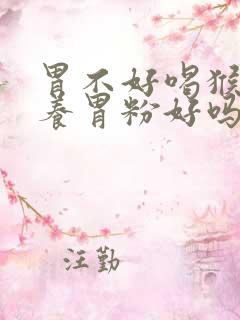 胃不好喝猴
养胃粉好吗
汪勤